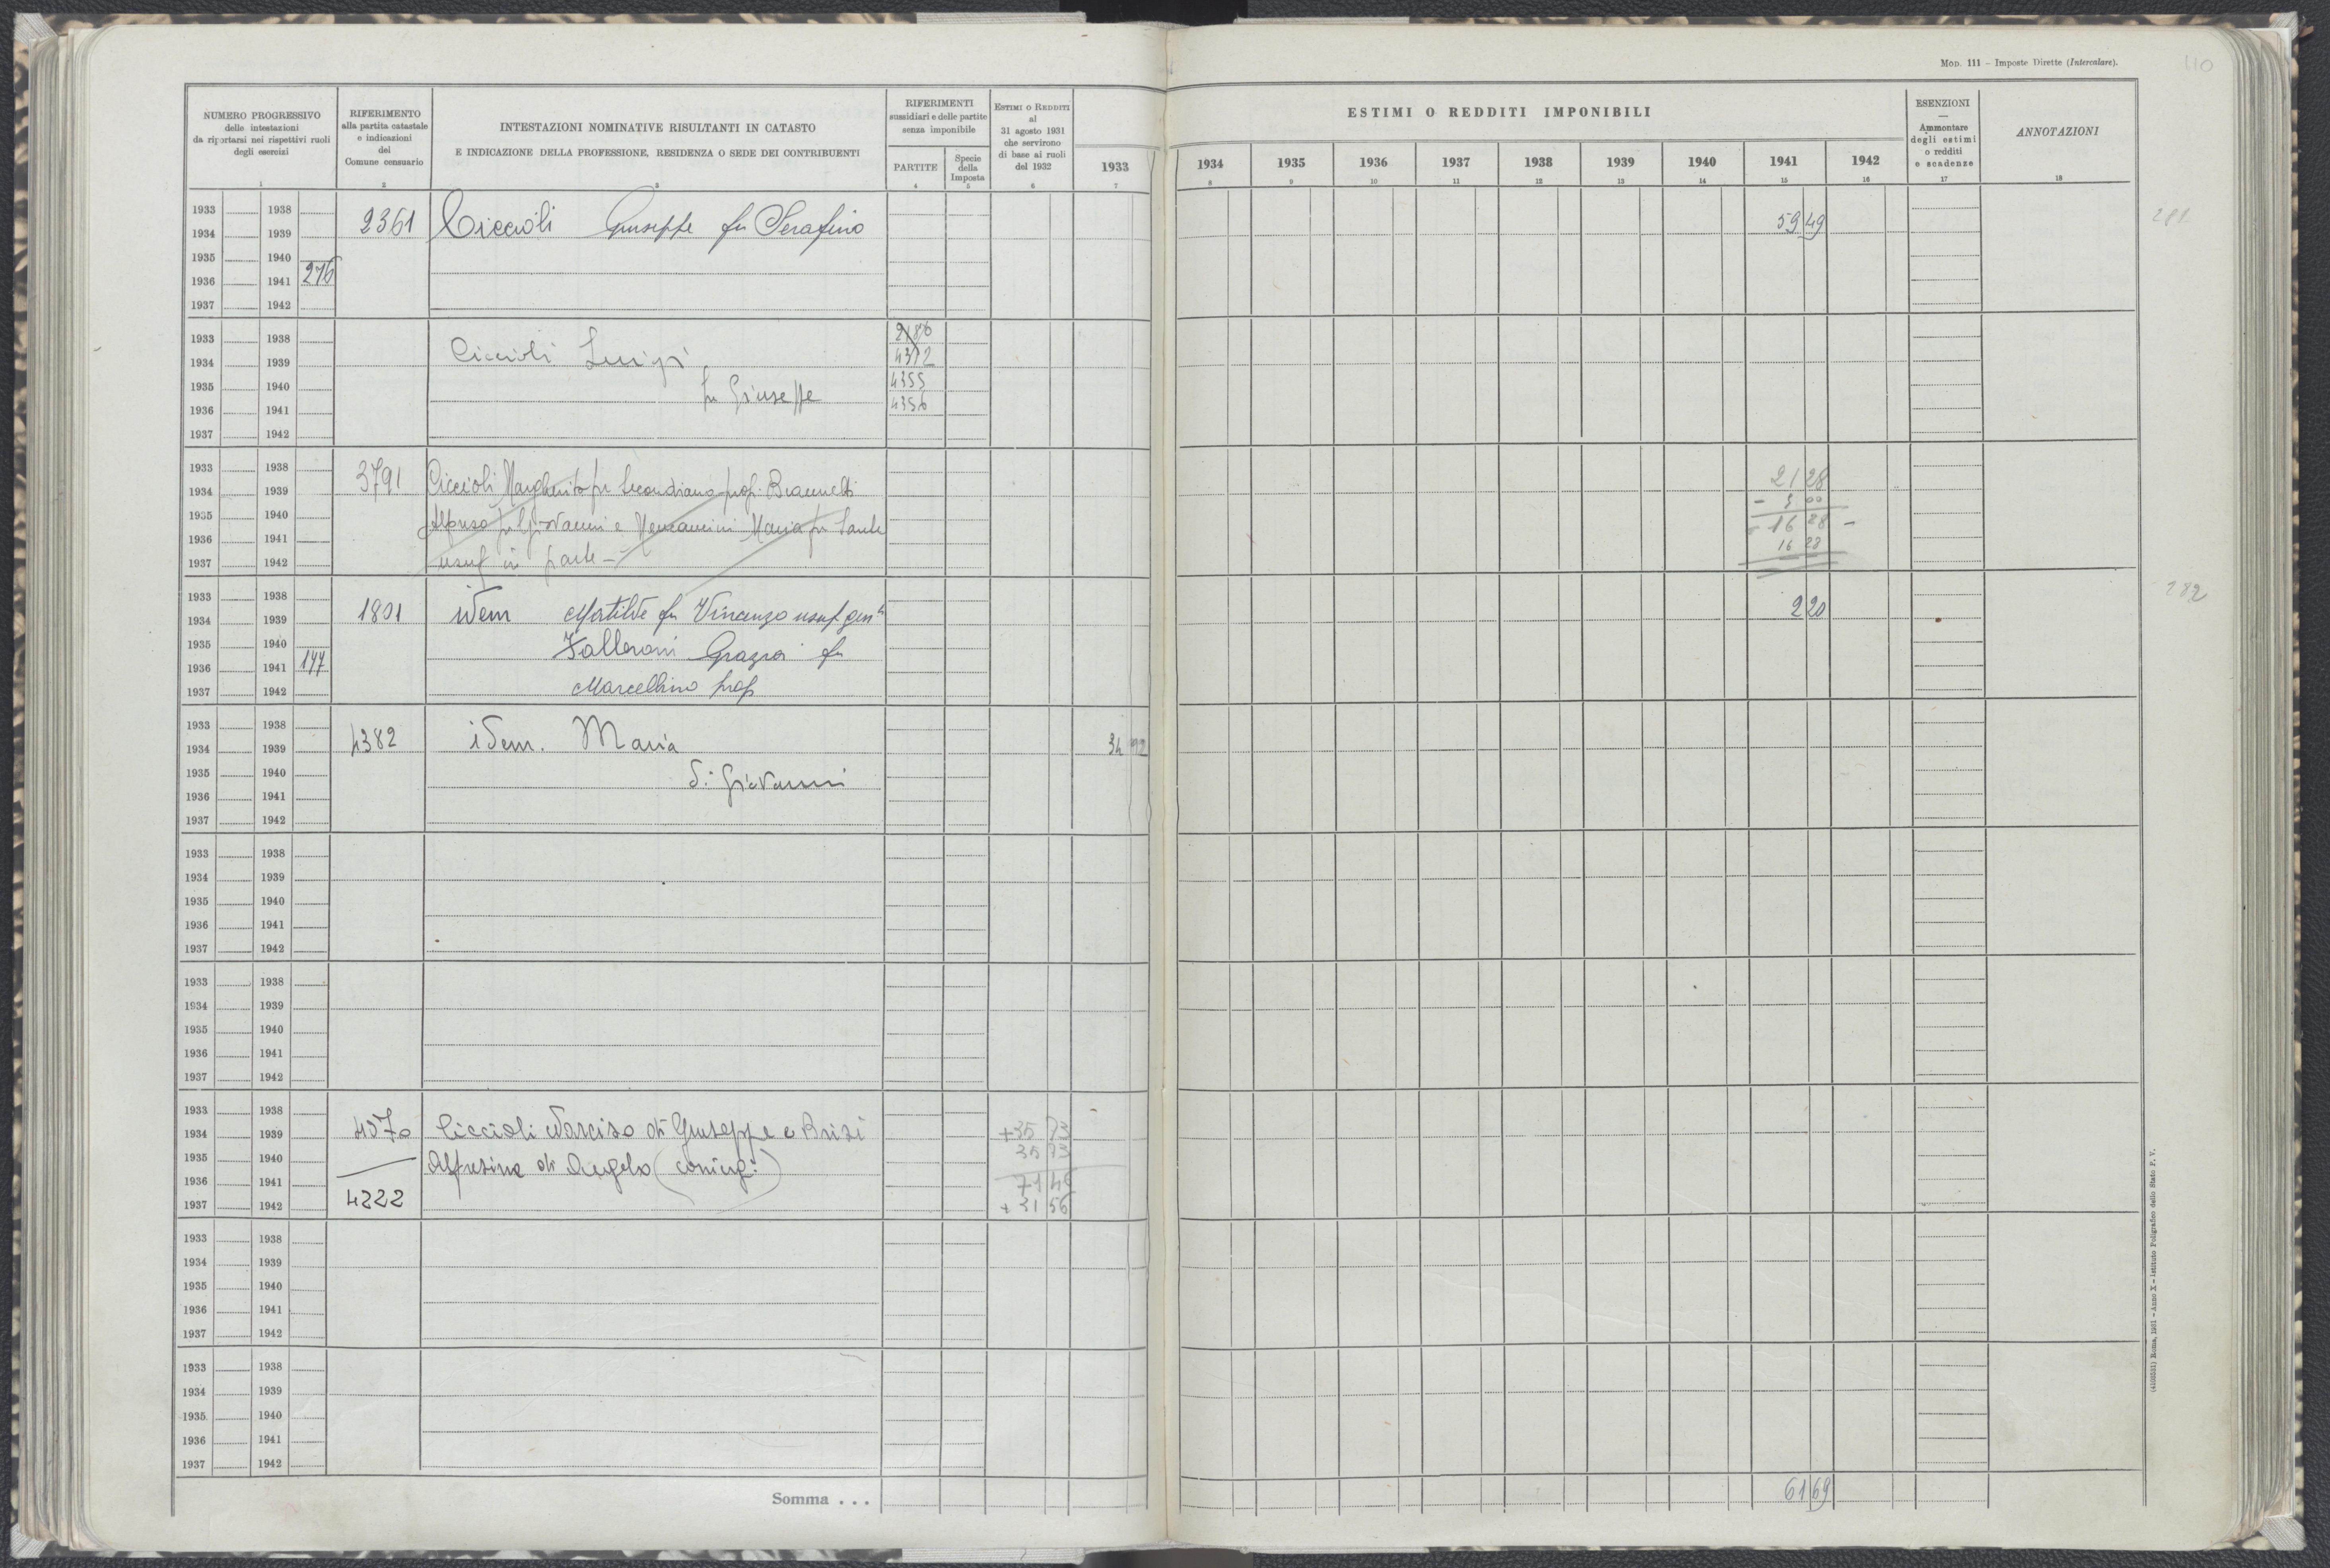 Mod. 111 - Imposte Dirette (Intercalare).
110
NUMERO PROGRESSIVO
delle intestazioni
da riportarsi nei rispettivi ruoli
degli esercizi
1
RIFERIMENTO
alla partita catastale
e indicazioni
del
Comune censuario
2
INTESTAZIONI NOMINATIVE RISULTANTI IN CATASTO
E INDICAZIONE DELLA PROFESSIONE, RESIDENZA O SEDE DEI CONTRIBUENTI
3
RIFERIMENTI
sussidiari e delle partite
senza imponibile
PARTITE
4
Specie
della
Imposta
5
Estimi o Redditi
al
31 agosto 1931
che servirono
di base ai ruoli
del 1932
6
ESTIMI O REDDITI IMPONIBILI
1933 1934 1935 1936 1937 1938 1939 1940 1941 1942
7 8 9 10 11 12 13 14 15 16
ESENZIONI
—
Ammontare
degli estimi
o redditi
e scadenze
17
ANNOTAZIONI
18
1933 1938
1934 1939
1935 1940
1936 1941 276
1937 1942
2361 Ciccioli Giuseppe fu Serafino 59 49
281
1933 1938
1934 1939
1935 1940
1936 1941
1937 1942
Ciccioli Luigi
fu Giuseppe
2186
4312
4355
4356
1933 1938
1934 1939
1935 1940
1936 1941
1937 1942
3791 Ciccioli Margherita fu Secondiano prop.
Alfonso fu Giovanni e Maria fu Sante
usuf in parte -
21 28
- 5 00
- 16 28 -
16 28
1933 1938
1934 1939
1935 1940
1936 1941 147
1937 1942
1801 idem Matilde fu Vincenzo usuf
Falleroni Grazia fu
Marcellino prop
2 20
282
1933 1938
1934 1939
1935 1940
1936 1941
1937 1942
4382 idem. Maria
di Giovanni
34 92
1933 1938
1934 1939
1935 1940
1936 1941
1937 1942
1933 1938
1934 1939
1935 1940
1936 1941
1937 1942
1933 1938
1934 1939
1935 1940
1936 1941
1937 1942
4570 Ciccioli Narciso di Giuseppe e Brizi
di Angelo (coniugi)
4222
+35 73
35 73
71 46
+ 31 56
1933 1938
1934 1939
1935 1940
1936 1941
1937 1942
1933 1938
1934 1939
1935 1940
1936 1941
1937 1942
Somma . . .
61 69
(4103531) Roma, 1931 - Anno X - Istituto Poligrafico dello Stato P. V.